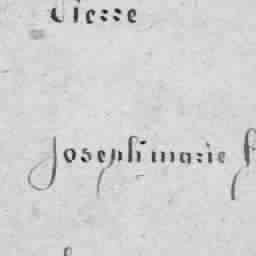 Pierre
Joseph marie